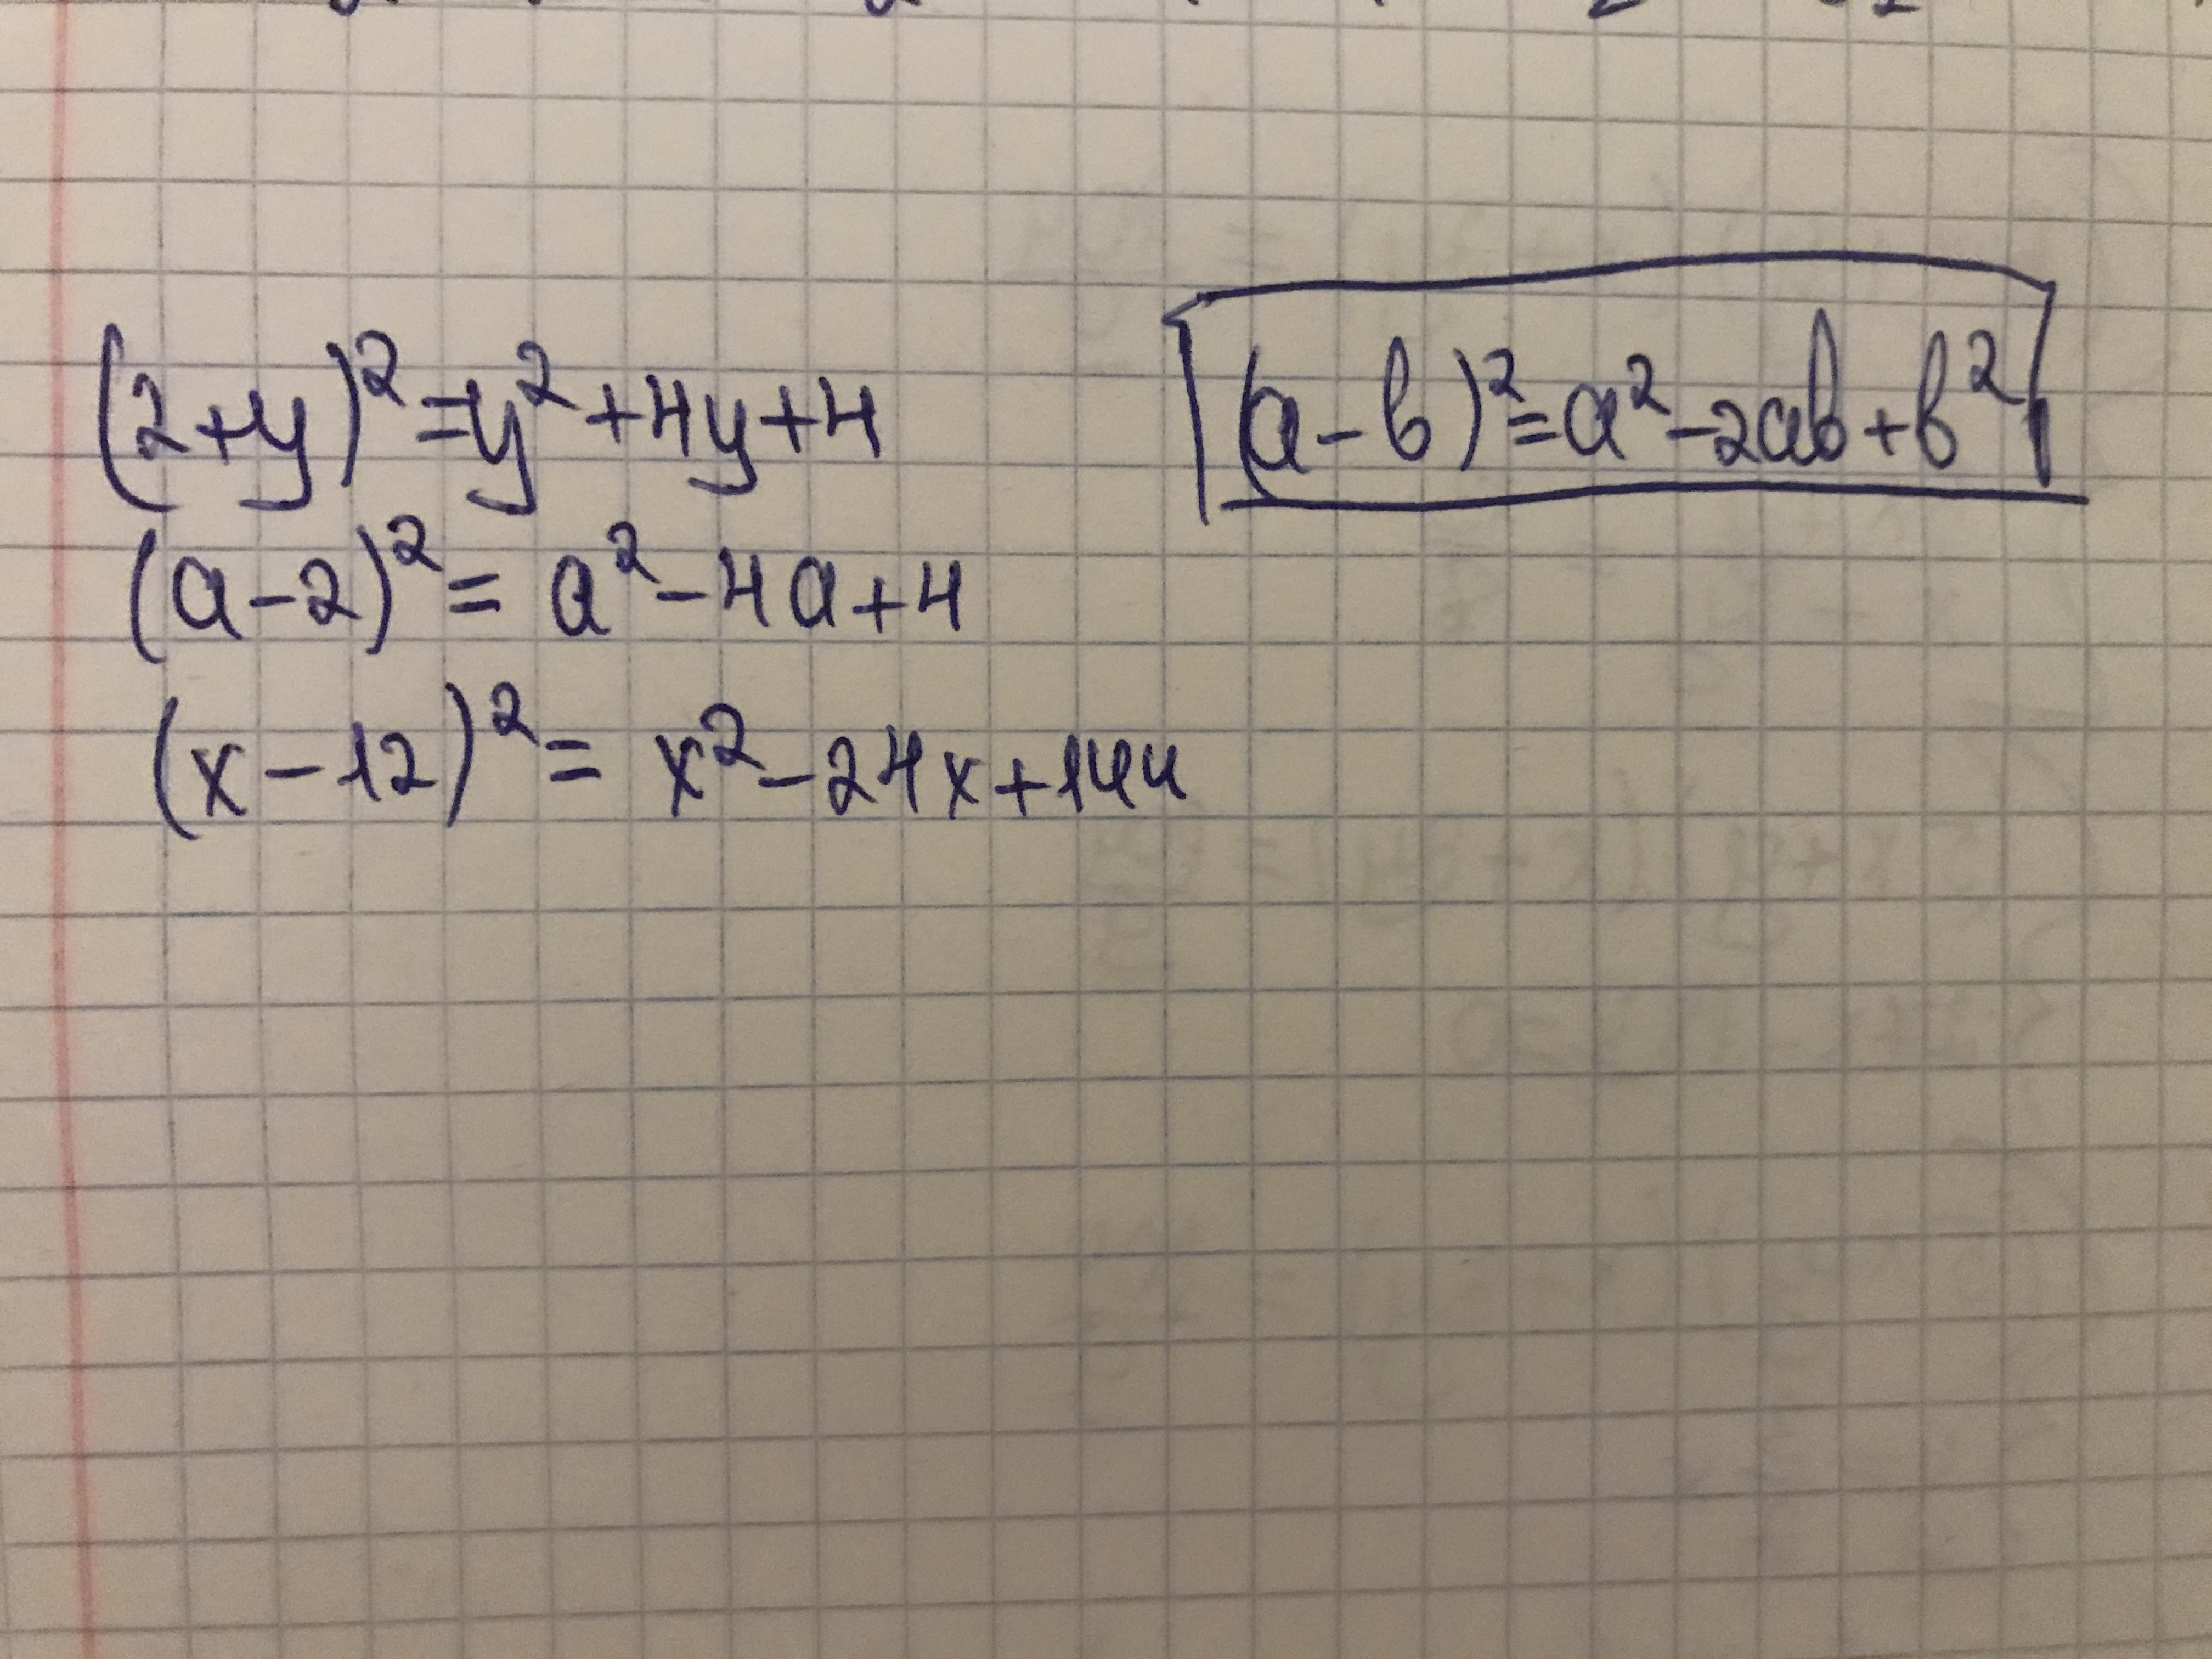 (2+y)²=y²+4y+4
(a-b)²=a²-2ab+b²
(a-2)²= a²-4a+4
(x-12)²= x²-24x+144